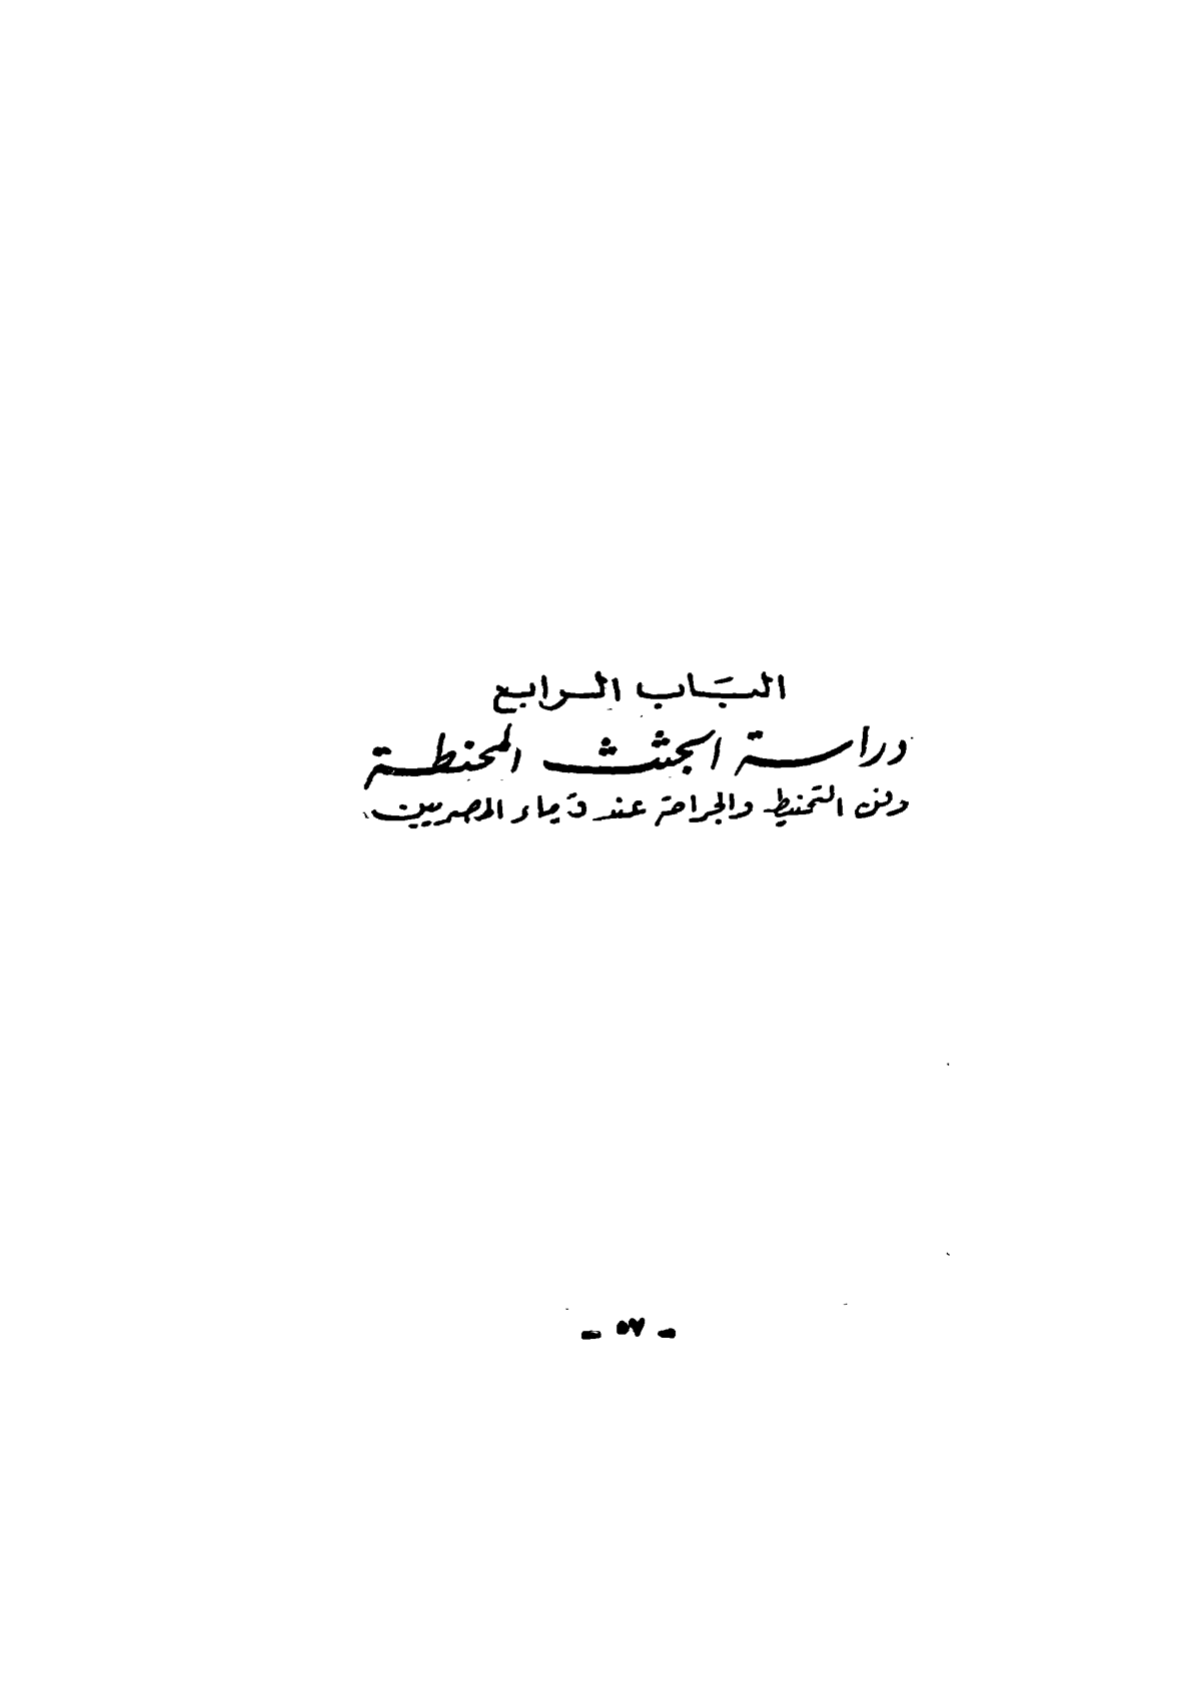 الباب الرابع
دراسة الجثث المحنطة
وفن التحنيط والجراحة عند قدماء المصريين
- ٥٧ -